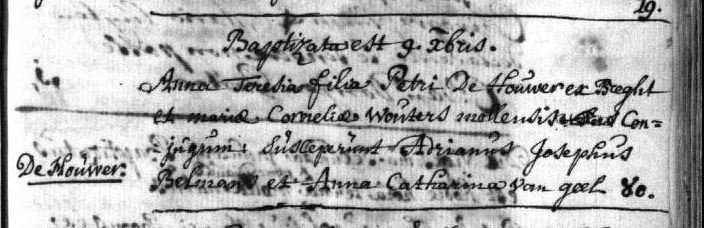 19.
Baptizata est 9. Xbris.
Anna Teresia filia Petri De Houwer ex Bæght
et mariæ Corneliæ Wouters mollensis Con=
jugum: susceperunt Adrianus Josephus
De Houwer. Belmans et Anna Catharina van geel 80.